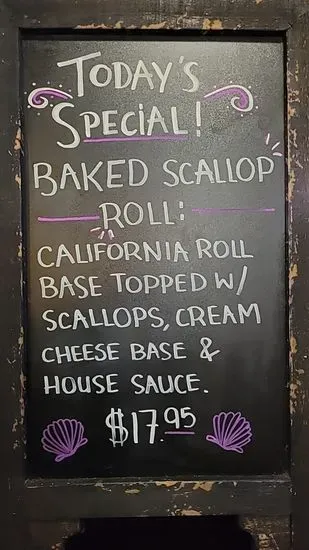 TODAY'S
SPECIAL!
BAKED SCALLOP
ROLL:
CALIFORNIA ROLL
BASE TOPPED W/
SCALLOPS, CREAM
CHEESE BASE &
HOUSE SAUCE.
$17.95